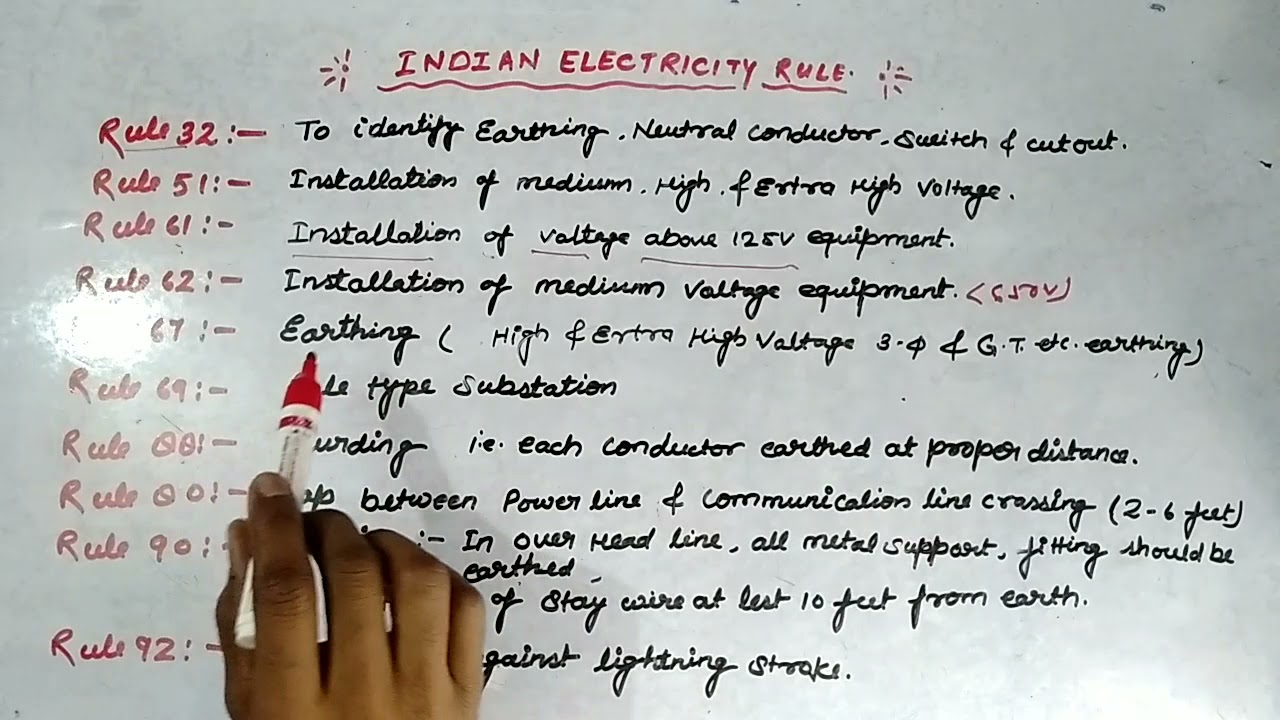 INDIAN ELECTRICITY RULE.
Rule 32:- To identify Earthing. Neutral Conductor. Switch & cutout.
Rule 51:- Installation of medium. High. & Extra High Voltage.
Rule 61:- Installation of voltage above 125V equipment.
Rule 62:- Installation of medium Voltage equipment. <650V)
67:- Earthing ( High & Extra High Voltage 3-φ & G.T. etc. earthing)
Rule 69:- type Substation
Rule 88:- i.e. each conductor earthed at propor distance.
Rule between Power line & Communication line crassing (2-6 feet)
Rule 90:- :- In over Head line, all metal support, fitting should be
earthed
of Stay wire at lest 10 feet from earth.
Rule 92:- lightning stroke.